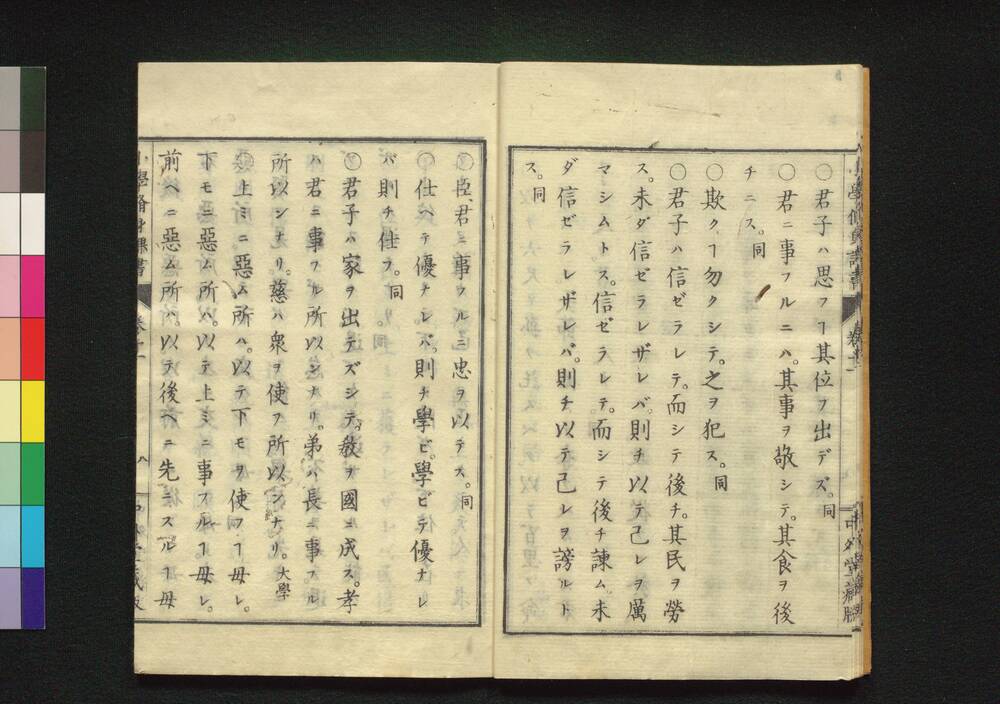 〇君子ハ思フヿ其位ヲ出デズ。同
〇君ニ事フルニハ。其事ヲ敬シテ。其食ヲ後
チニス。同
〇欺クヿ勿クシテ。之ヲ犯ス。同
〇君子ハ信ゼラレテ。而シテ後チ。其民ヲ勞
ス。未ダ信ゼラレザレバ。則チ以テ己レヲ厲
マシムトス。信ゼラレテ。而シテ後チ諌ム。未
ダ信ゼラレザレバ。則チ以テ己レヲ謗ルト
ス。同
〇臣、君ニ事フルニ忠ヲ以テス。同
〇仕ヘテ優ナレバ。則チ學ビ。學ビテ優ナレ
バ則チ仕フ。同
〇君子ハ家ヲ出デズシテ。敎ヲ國ニ成ス。孝
ハ君ニ事フル所以ンナリ。弟ハ長ニ事フル
所以ンナリ。慈ハ衆ヲ使フ所以ンナリ。大學
〇上ミニ惡ム所ハ。以テ下モヲ使フヿ毋レ。
下モニ惡ム所ハ。以テ上ミニ事フルヿ毋レ。
前ヘニ惡ム所ハ。以テ後ヘニ先ニスルヿ毋